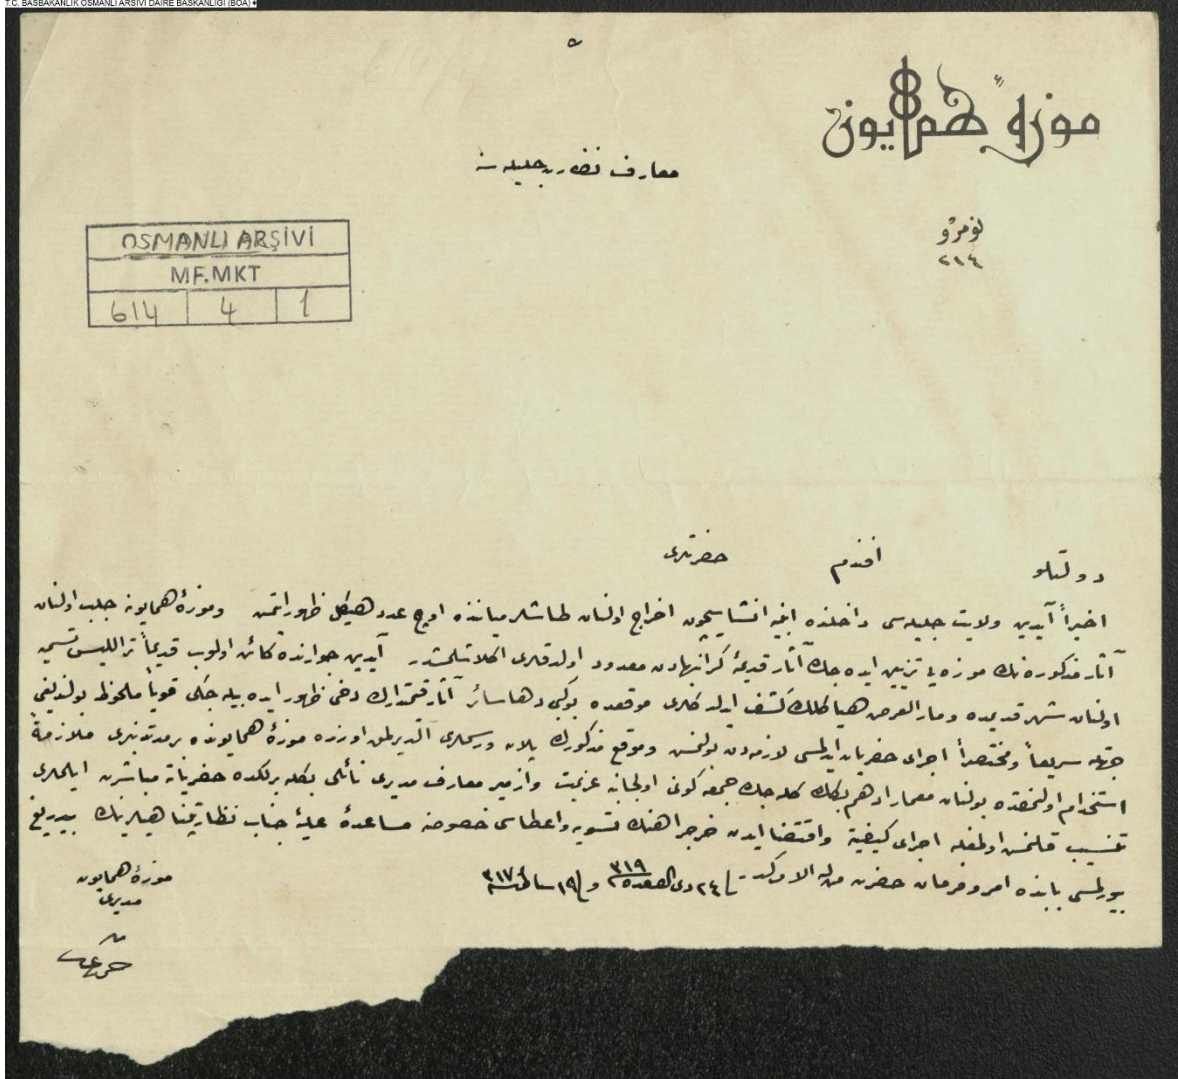 T.C. BAŞBAKANLIK OSMANLI ARŞİVİ DAİRE BAŞKANLIĞI (BOA)
موزهٔ همایون
معارف نظارت جلیله‌سنه
نومرو
٢١٤
OSMANLI ARŞİVİ
MF.MKT
614 4 1
دولتلو افندم حضرتلری
اخیراً آیدین ولایت جلیله‌سی داخلنده ابنیه انشاسیچون اخراج اولنان طاشلر میاننده اوچ عدد هیکل ظهور ایتمش و موزهٔ همایونه جلب اولنان
آثار مذکوره‌نك موزه‌یی تزیین ایده‌جك آثار قدیمهٔ گرانبهادن معدود اولدقلری اكلاشلمشدر آیدین جوارنده كائن اولوب قدیماً تراللیس تسمیه
اولنان شهر قدیمده و مار العرض هیاكلك كشف ایدلدكلری موقعده بوكبی دها سائر آثار قیمتدارك دخی ظهور ایده‌بیله‌جكی قویاً ملحوظ بولندیغی
جهتله سریعاً و مختصراً اجرای حفریات ایدلمسی لازمه‌دن بولنمش و موقع مذكورك پلان و رسملری آلدیرلمق اوزره موزهٔ همایونده بر مدتدنبری ملازمةً
استخدام اولنمقده بولنان معمار ادهم بكك كله‌جك جمعه كونی اولجانبه عزیمت و ازمیر معارف مدیری نائلی بكله برلكده حفریاته مباشرت ایلملری
تنسیب قلنمش اولمغله اجرای كیفیت و اقتضا ایدن خرجراهنك تسویه و اعطاسی خصوصنه مساعدهٔ علیهٔ جناب نظارتپناهیلرینك بیدریغ
بیورلمسی بابنده امر و فرمان حضرت من له الامركدر فی ٢٤ ذی القعده ٣١٩ و فی ١٩ شباط ٣١٧
موزهٔ همایون
مدیری